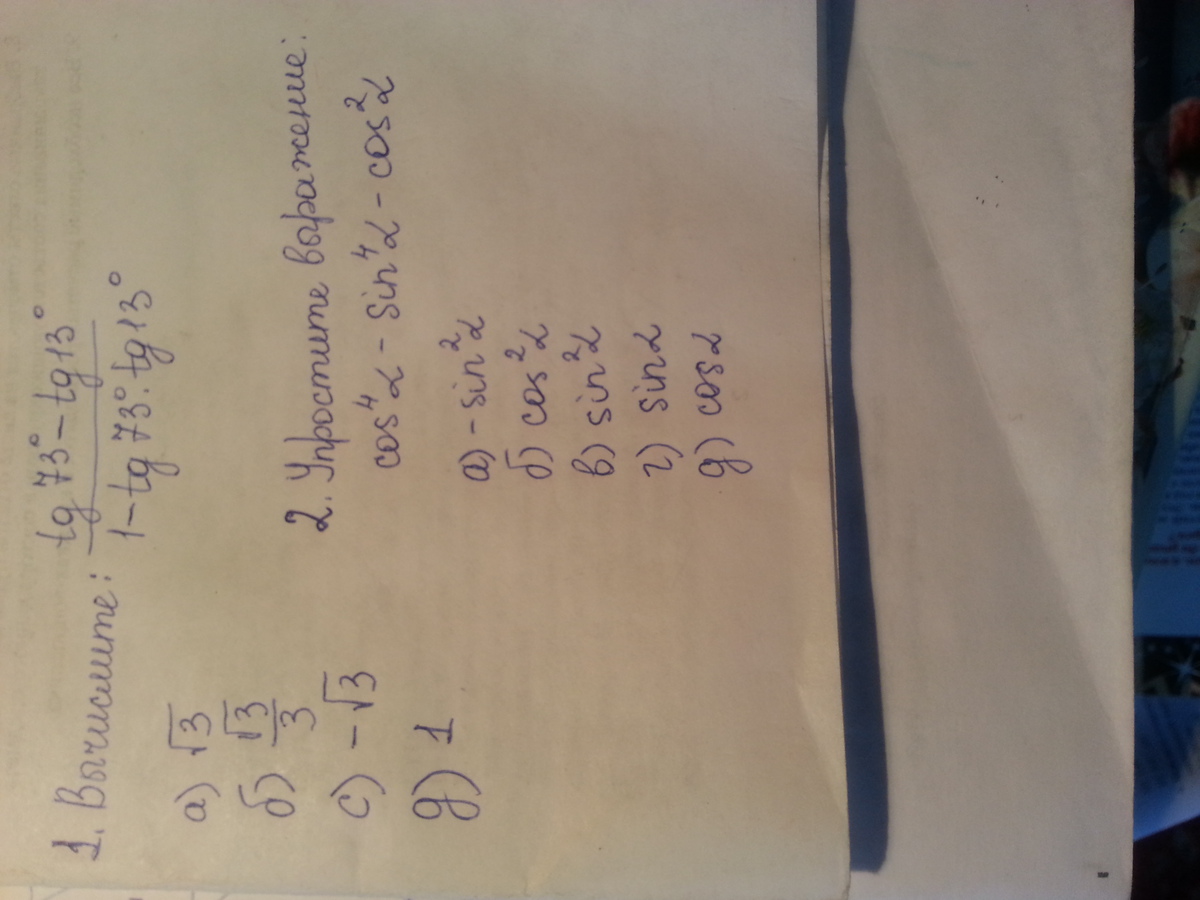 1. Вычислите: tg 73° - tg 13°
1 - tg 73° · tg 13°
а) √3
б) √3/3
с) -√3
д) 1
2. Упростите выражение:
cos⁴α - sin⁴α - cos²α
а) - sin²α
б) cos²α
в) sin²α
г) sinα
д) cosα